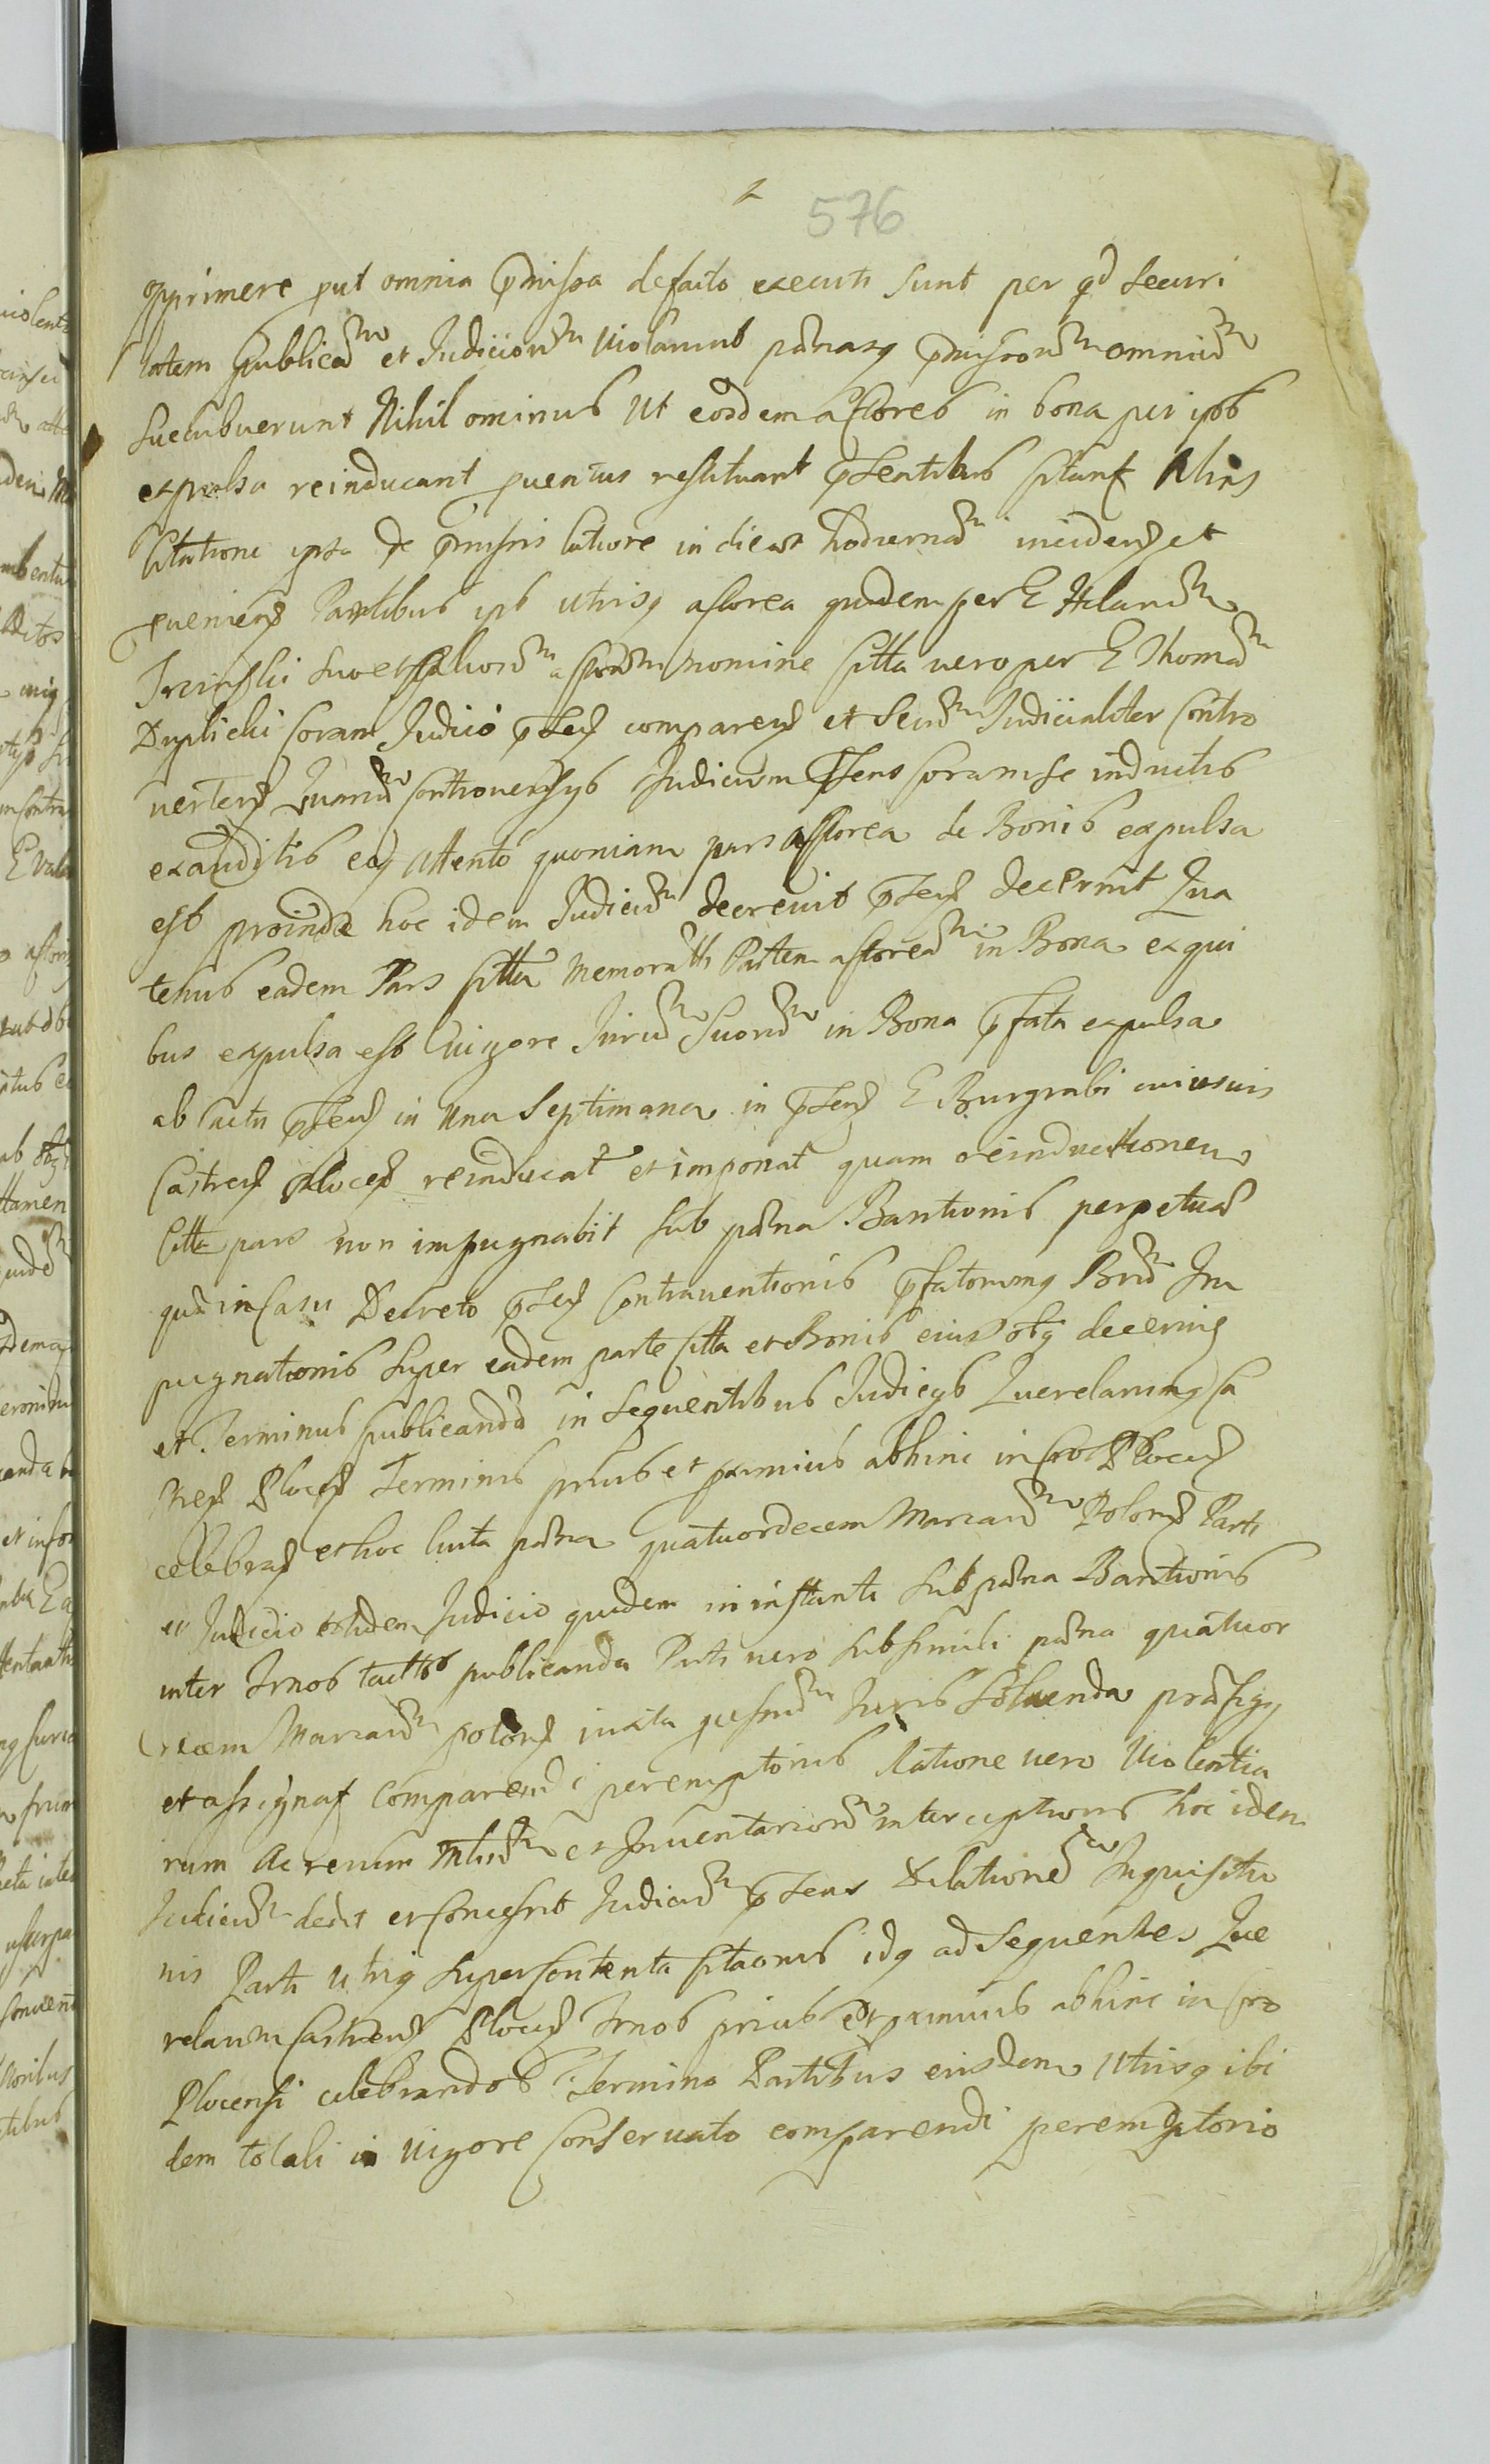 576
opprimere put omnia pmissa defacto executi sunt per qd securi
tatem publicam et Judiciorum violarunt pænasq pmissorum omnium
succubuerunt Nihil ominus ut eosdem actores in bona per ipsos
expulsa reinducant puentus restituant psentibus citant
Citatione ipsa de pmissis latiore in diem hodiernam inciden et
pueniens Partibus ipsis utrisq actorea quidem per E Hilarum
suo et aliorum actorum nomine citta vero per E Thomam
Duplicki coram Judicio psen comparen et secum Judicialiter contro
verten Quarum controversiys Judicium psens coram se inductis
exauditis eoq attento quoniam pars actorea de Bonis expulsa
est proinde hoc idem Judicium decrevit psen decernit Qua
tenus eadem Pars citta memoratam Partem actoream in Bona ex qui
bus expulsa est vigore Jurium suorum in Bona pfata expulsa
ab actu psen in una septimana in psen E Burgrabi cuiusvis
Castren Plocen reinducat et imponat quam reinductionem
Citta pars non impugnabit sub pæna Bannitionis perpetuæ
quæ in casu Decreto psen contraventionis pfatorumq Bnorum Im
pugnationis super eadem parte citta et Bonis eius obq decerni
et Terminus publicandæ in sequentibus Judicys Querelarumq Ca
stren Plocen Terminis prius et primius abhinc in Cro Plocen
celebran et hoc luita pæna quatuordecem Marcarum Polon Parti
et Judicio et idem Judicio quidem in instanti sub pæna Bannitionis
inter Trnos tactos publicanda Parti vero sub simili pæna quatuor
decem Marcarum polon iuxta Juris solvenda præfigi
et assignat comparendi peremptorius Ratione vero violentia
rum ac rerum et Inventariorum interceptionis hoc idem
Judicium dedit et concessit Judicium psens dilationem Inquisitio
nis Parti utriq super contenta cittaonis idq ad sequentes Que
relarum castren Plocen Trnos prius et primius abhinc in Cro
Plocensi celebrandos Termino Partibus eisdem utrisq ibi
dem totali in vigore conservato comparendi peremptorio